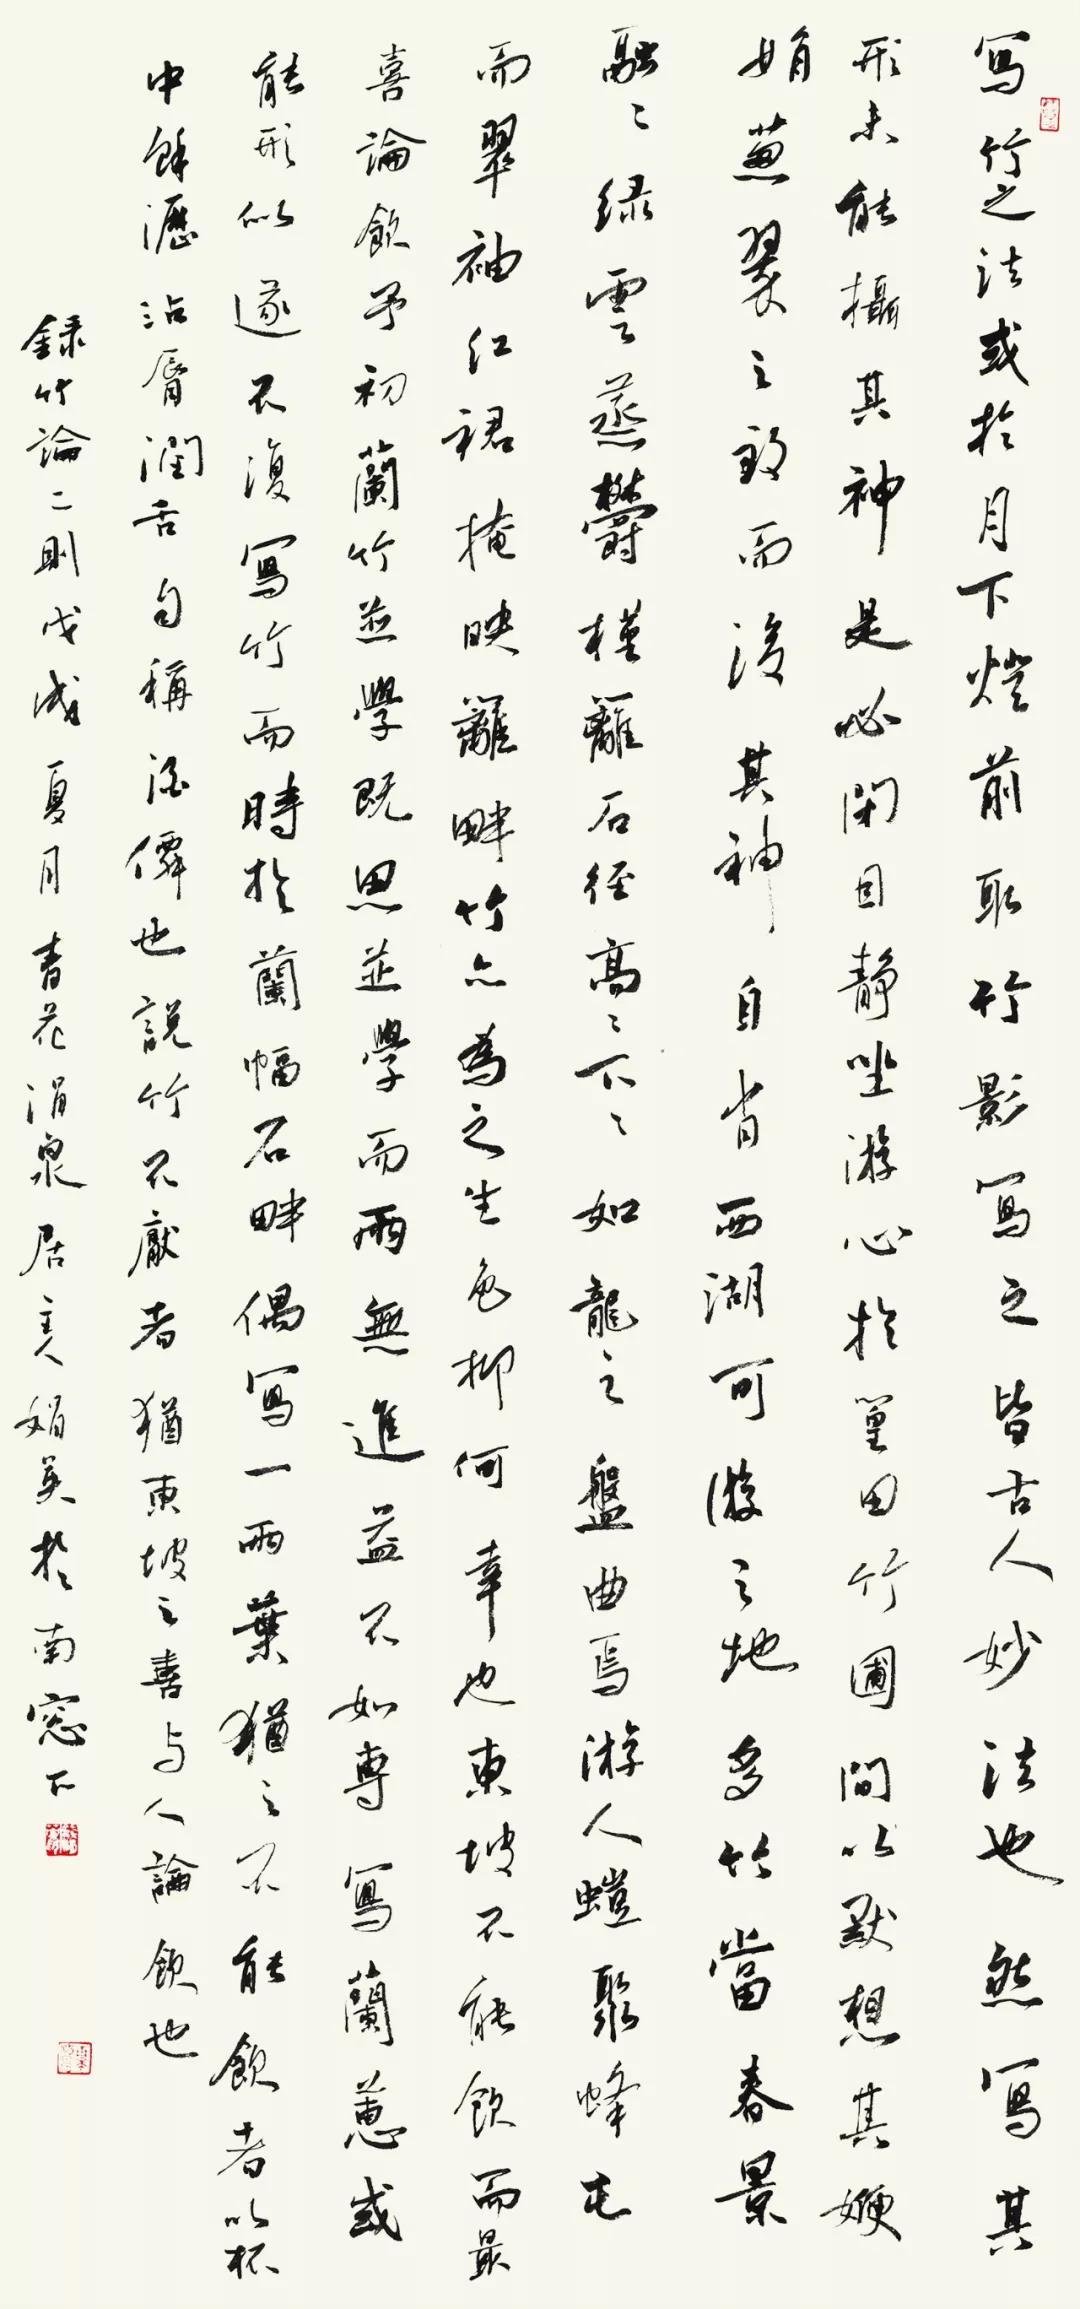 寫竹之法或於月下燈前取竹影寫之皆古人妙法也然寫其
形未能攝其神是必閉目靜坐游心於篁田竹圃間以默想其㛹
娟蔥翠之致而後其神自肖西湖可游之地多竹當春景
融〻绿雲蒸欝槿籬石径高〻下〻如龍之盤曲焉游人螘聚蜂屯
而翠袖红裙掩映籬畔竹亦為之生色抑何幸也東坡不能飲而最
喜論飲予初蘭竹並學既思並學而兩無進益不如專寫蘭蕙或
能形似遂不復寫竹而時於蘭幅石畔偶寫一兩葉猶之不能飲者以杯
中餘瀝沾脣潤舌自稱酒僊也說竹不厭者猶東坡之喜与人論飲也
録竹論二則戊戌夏月青花涓泉居主人娟英於南窓下